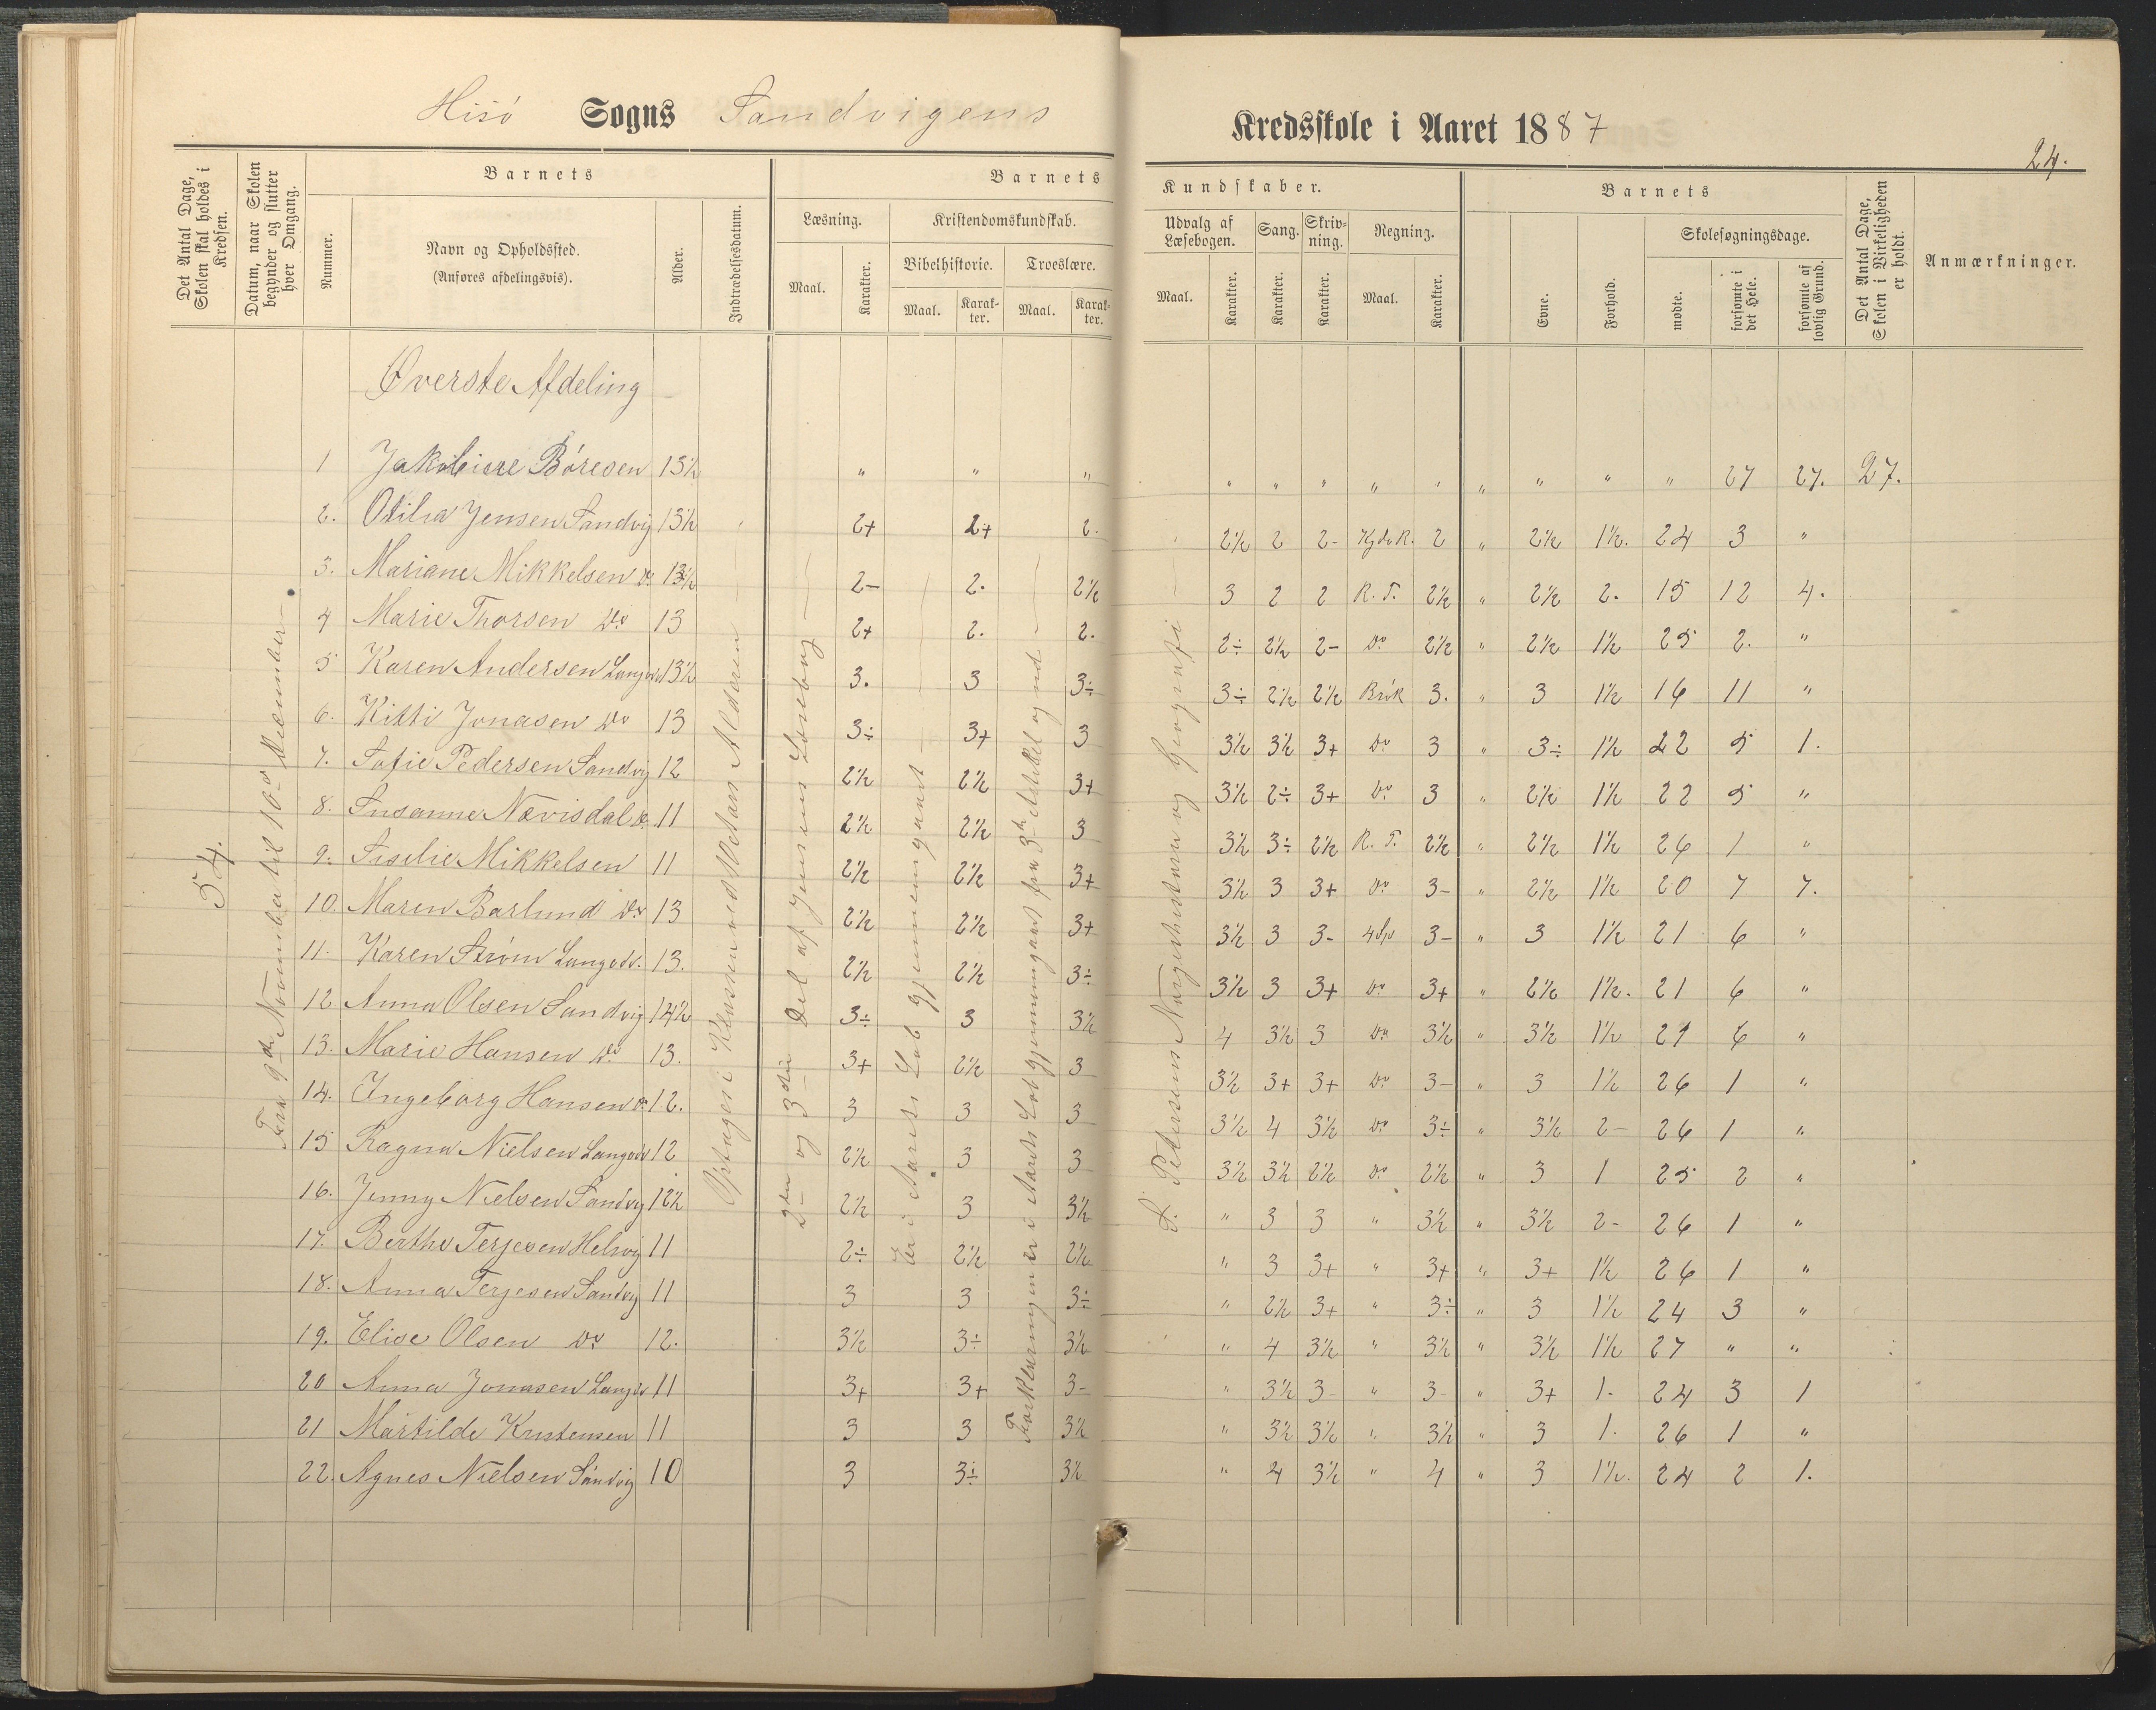 Hisö Sogns Sandvigens Kredsskole i Aaret 1887
24.
Det Antal Dage, Skolen skal holdes i Kredsen.
Datum, naar Skolen begynder og slutter hver Omgang.
Barnets
Nummer.
Navn og Opholdssted.
(Anføres afdelingsvis).
Alder.
Indtrædelsesdatum.
Barnets Kundskaber.
Læsning.
Maal.
Karakter.
Kristendomskundskab.
Bibelhistorie.
Maal.
Karakter.
Troeslære.
Maal.
Karakter.
Udvalg af Læsebogen.
Maal.
Karakter.
Sang.
Karakter.
Skrivning.
Karakter.
Regning.
Maal.
Karakter.
Barnets
Evne.
Forhold.
Skolesøgningsdage.
mødte.
forsømte i det Hele.
forsømte af lovlig Grund.
Det Antal Dage, Skolen i Virkeligheden er holdt.
Anmærkninger.
Øverste Afdeling
54.
Fra 9de November til 10de December
Optages i Klassen ved Alderen
2den og 3die Del af Jensens Læsebog
Er i Aarets Løb gjennemgaaet
Forklaringen er i Aarets Løb gjennemgaaet fra 3die Artikel og ud
S. Petersens Norgeshistorie og Geografi
1 Jakobine Böresen 13½ " " " " " " " " " " " " 27 27. 27.
2. Otilia Jensen Sandvig 13½ 2+ 2+ 2. 2½ 2 2- Kjdr. 2 " 2½ 1½. 24 3 "
3. Mariane Mikkelsen Do 13½ 2- 2. 2½ 3 2 2 R. T. 2½ " 2½ 2. 15 12 4.
4 Marie Thorsen Do 13 2+ 2. 2. 2÷ 2½ 2- Do 2½ " 2½ 1½ 25 2. "
5 Karen Andersen Langev 13½ 3. 3 3÷ 3÷ 2½ 2½ Brök 3. " 3 1½ 16 11 "
6. Kitti Jonasen Do 13 3÷ 3+ 3 3½ 3½ 3+ Do 3 " 3÷ 1½ 22 5 1.
7. Sofie Pedersen Sandvig 12 2½ 2½ 3+ 3½ 2÷ 3+ Do 3 " 2½ 1½ 22 5 "
8. Susanne Nævisdal Do 11 2½ 2½ 3 3½ 3÷ 2½ R. T. 2½ " 2½ 1½ 26 1 "
9. Siselie Mikkelsen 11 2½ 2½ 3+ 3½ 3 3+ Do 3- " 2½ 1½ 20 7 7.
10. Maren Barlund Do 13 2½ 2½ 3+ 3½ 3 3- 4 Sp 3- " 3 1½ 21 6 "
11. Karen Ström Langev. 13. 2½ 2½ 3÷ 3½ 3 3+ Do 3+ " 2½ 1½. 21 6 "
12 Anna Olsen Sandvig 14½ 3÷ 3 3½ 4 3½ 3 Do 3½ " 3½ 1½ 21 6 "
13. Marie Hansen Do 13. 3+ 2½ 3 3½ 3+ 3+ Do 3- " 3 1½ 26 1 "
14. Ingeborg Hansen Do 12. 3 3 3 3½ 4 3½ Do 3÷ " 3½ 2- 26 1 "
15 Ragna Nielsen Langev 12 2½ 3 3 3½ 3½ 2½ Do 2½ " 3 1 25 2 "
16. Jenny Nielsen Sandvig 12½ 2½ 3 3½ " 3 3 " 3½ " 3½ 2- 26 1 "
17. Berthe Terjesen Helvig 11 2÷ 2½ 2½ " 3 3+ " 3+ " 3+ 1½ 26 1 "
18. Anna Terjesen Sandvig 11 3 3 3÷ " 2½ 3+ " 3÷ " 3 1½ 24 3 "
19. Elise Olsen Do 12. 3½ 3÷ 3½ " 4 3½ " 3½ " 3½ 1½ 27 " "
20 Anna Jonasen Langev 11 3+ 3+ 3- " 3½ 3- " 3- " 3+ 1- 24 3 1
21 Martilde Kristensen 11 3 3 3½ " 3½ 3½ " 3½ " 3 1. 26 1 "
22. Agnes Nielsen Sandvig 10 3 3÷ 3½ " 4 3½ " 4 " 3 1½. 24 2 1.